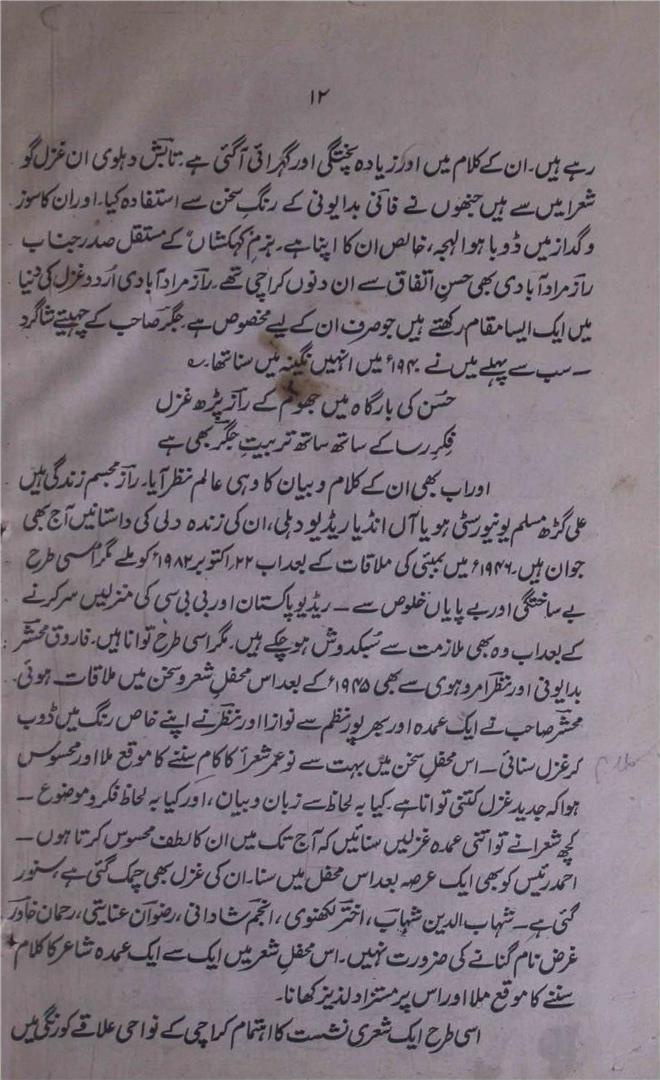 ۱۲
رہے ہیں۔ ان کے کلام میں اور زیادہ پختگی اور گہرائی آگئی ہے۔ تابشؔ دہلوی ان غزل گو
شعرا میں سے ہیں جنھوں نے فانی بدایونی کے رنگِ سخن سے استفادہ کیا۔ اور ان کا سوز
و گداز میں ڈوبا ہوا لہجہ، خالص ان کا اپنا ہے۔ بزم کہکشاں کے مستقل صدر جناب
رازؔ مراد آبادی بھی حسنِ اتفاق سے ان دنوں کراچی تھے۔ رازؔ مراد آبادی اردو غزل کی دنیا
میں ایک ایسا مقام رکھتے ہیں جو صرف ان کے لیے مخصوص ہے۔ جگر صاحب کے چہیتے شاگرد
۔ سب سے پہلے میں نے ۱۹۴۰ء میں انہیں نگینہ میں سنا تھا۔ ؎
حُسن کی بارگاہ میں جھوم کے رازؔ پڑھ غزل
فکرِ رسا کے ساتھ ساتھ تربیتِ جگرؔ بھی ہے
اور اب بھی ان کے کلام و بیان کا وہی عالم نظر آیا۔ رازؔ مجسم زندگی ہیں
علی گڑھ مسلم یونیورسٹی ہو یا آل انڈیا ریڈیو دہلی، ان کی زندہ دلی کی داستانیں آج بھی
جوان ہیں۔ ۱۹۴۶ء میں بمبئی کی ملاقات کے بعد اب ۲۲؍اکتوبر ۱۹۸۲ء کو ملے مگر اُسی طرح
بے ساختگی اور بے پایاں خلوص سے ۔ ریڈیو پاکستان اور بی بی سی کی منزلیں سر کرنے
کے بعد اب وہ بھی ملازمت سے سُبکدوش ہو چکے ہیں۔ مگر اسی طرح توانا ہیں۔ فاروق محشرؔ
بدایونی اور منظرؔ امروہوی سے بھی ۱۹۴۵ء کے بعد اس محفلِ شعر و سخن میں ملاقات ہوئی۔
محشرؔ صاحب نے ایک عمدہ اور بھرپور نظم سے نوازا اور منظرؔ نے اپنے خاص رنگ میں ڈوب
کر غزل سنائی ۔ اس محفلِ سخن میں بہت سے نو عمر شعرأ کا کلام سننے کا موقع ملا اور محسوس
ہوا کہ جدید غزل کتنی توانا ہے۔ کیا بہ لحاظ سے زبان و بیان، اور کیا بہ لحاظ فکر و موضوع ۔
کچھ شعرا نے تو اتنی عمدہ غزلیں سنائیں کہ آج تک میں ان کا لطف محسوس کرتا ہوں ۔
احمد رئیسؔ کو بھی ایک عرصہ بعد اس محفل میں سنا۔ ان کی غزل بھی چمک گئی ہے، سنور
گئی ہے۔ شہاب الدین شہابؔ، اخترؔ لکھنوی، انجمؔ شادانی، رضوانؔ عنایتی، رحمان خاورؔ
غرض نام گنانے کی ضرورت نہیں۔ اس محفلِ شعر میں ایک سے ایک عمدہ شاعر کا کلام
سننے کا موقع ملا اور اس پر مستزاد لذیذ کھانا۔
اسی طرح ایک شعری نشست کا اہتمام کراچی کے نواحی علاقے کورنگی میں